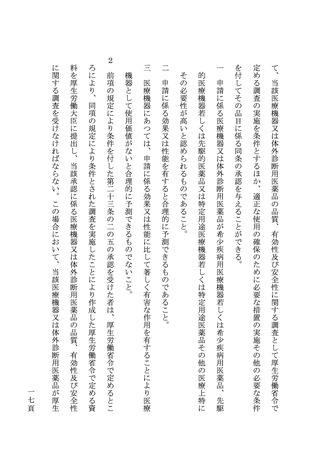 て、当該医療機器又は体外診断用医薬品の品質、有効性及び安全性に関する調査として厚生労働省令で
定める調査の実施を条件とするほか、適正な使用の確保のために必要な措置の実施その他の必要な条件
を付してその品目に係る同条の承認を与えることができる。
一 申請に係る医療機器又は体外診断用医薬品が希少疾病用医療機器若しくは希少疾病用医薬品、先駆
的医療機器若しくは先駆的医薬品又は特定用途医療機器若しくは特定用途医薬品その他の医療上特に
その必要性が高いと認められるものであること。
二 申請に係る効果又は性能を有すると合理的に予測できるものであること。
三 医療機器にあつては、申請に係る効果又は性能に比して著しく有害な作用を有することにより医療
機器として使用価値がないと合理的に予測できるものでないこと。
2 前項の規定により条件を付した第二十三条の二の五の承認を受けた者は、厚生労働省令で定めるとこ
ろにより、同項の規定により条件とされた調査を実施したことにより作成した厚生労働省令で定める資
料を厚生労働大臣に提出し、当該承認に係る医療機器又は体外診断用医薬品の品質、有効性及び安全性
に関する調査を受けなければならない。この場合において、当該医療機器又は体外診断用医薬品が厚生
一七頁